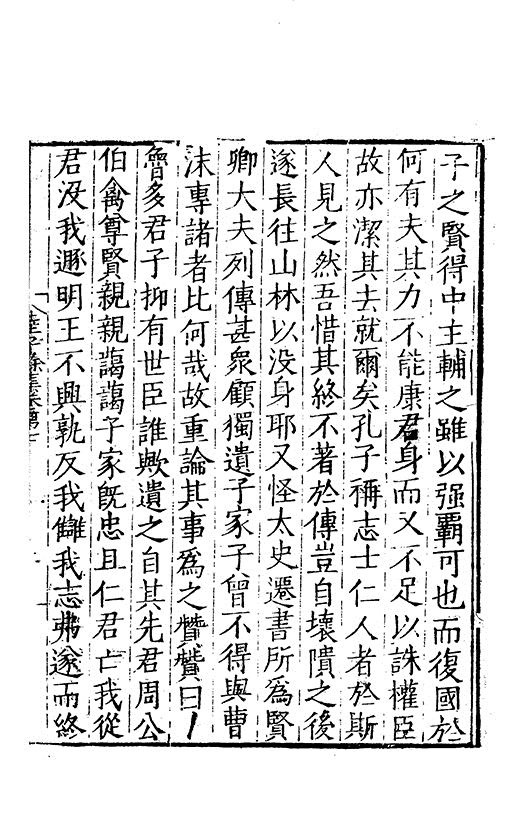 子之賢得中主輔之雖以强霸可也而復國於
何有夫其力不能康君身而又不足以誅權臣
故亦潔其去就爾矣孔子稱志士仁人者於斯
人見之然吾惜其終不著於傳豈自壞隤之後
遂長往山林以没身耶又怪太史遷書所爲賢
卿大夫列傳甚衆顧獨遺子家子曾不得與曹
沫專諸者比何哉故重論其事爲之贊贊曰
魯多君子抑有世臣誰歟遺之自其先君周公
伯禽尊賢親親藹藹子家既忠且仁君亡我從
君没我遯明王不興孰反我讎我志弗遂而終